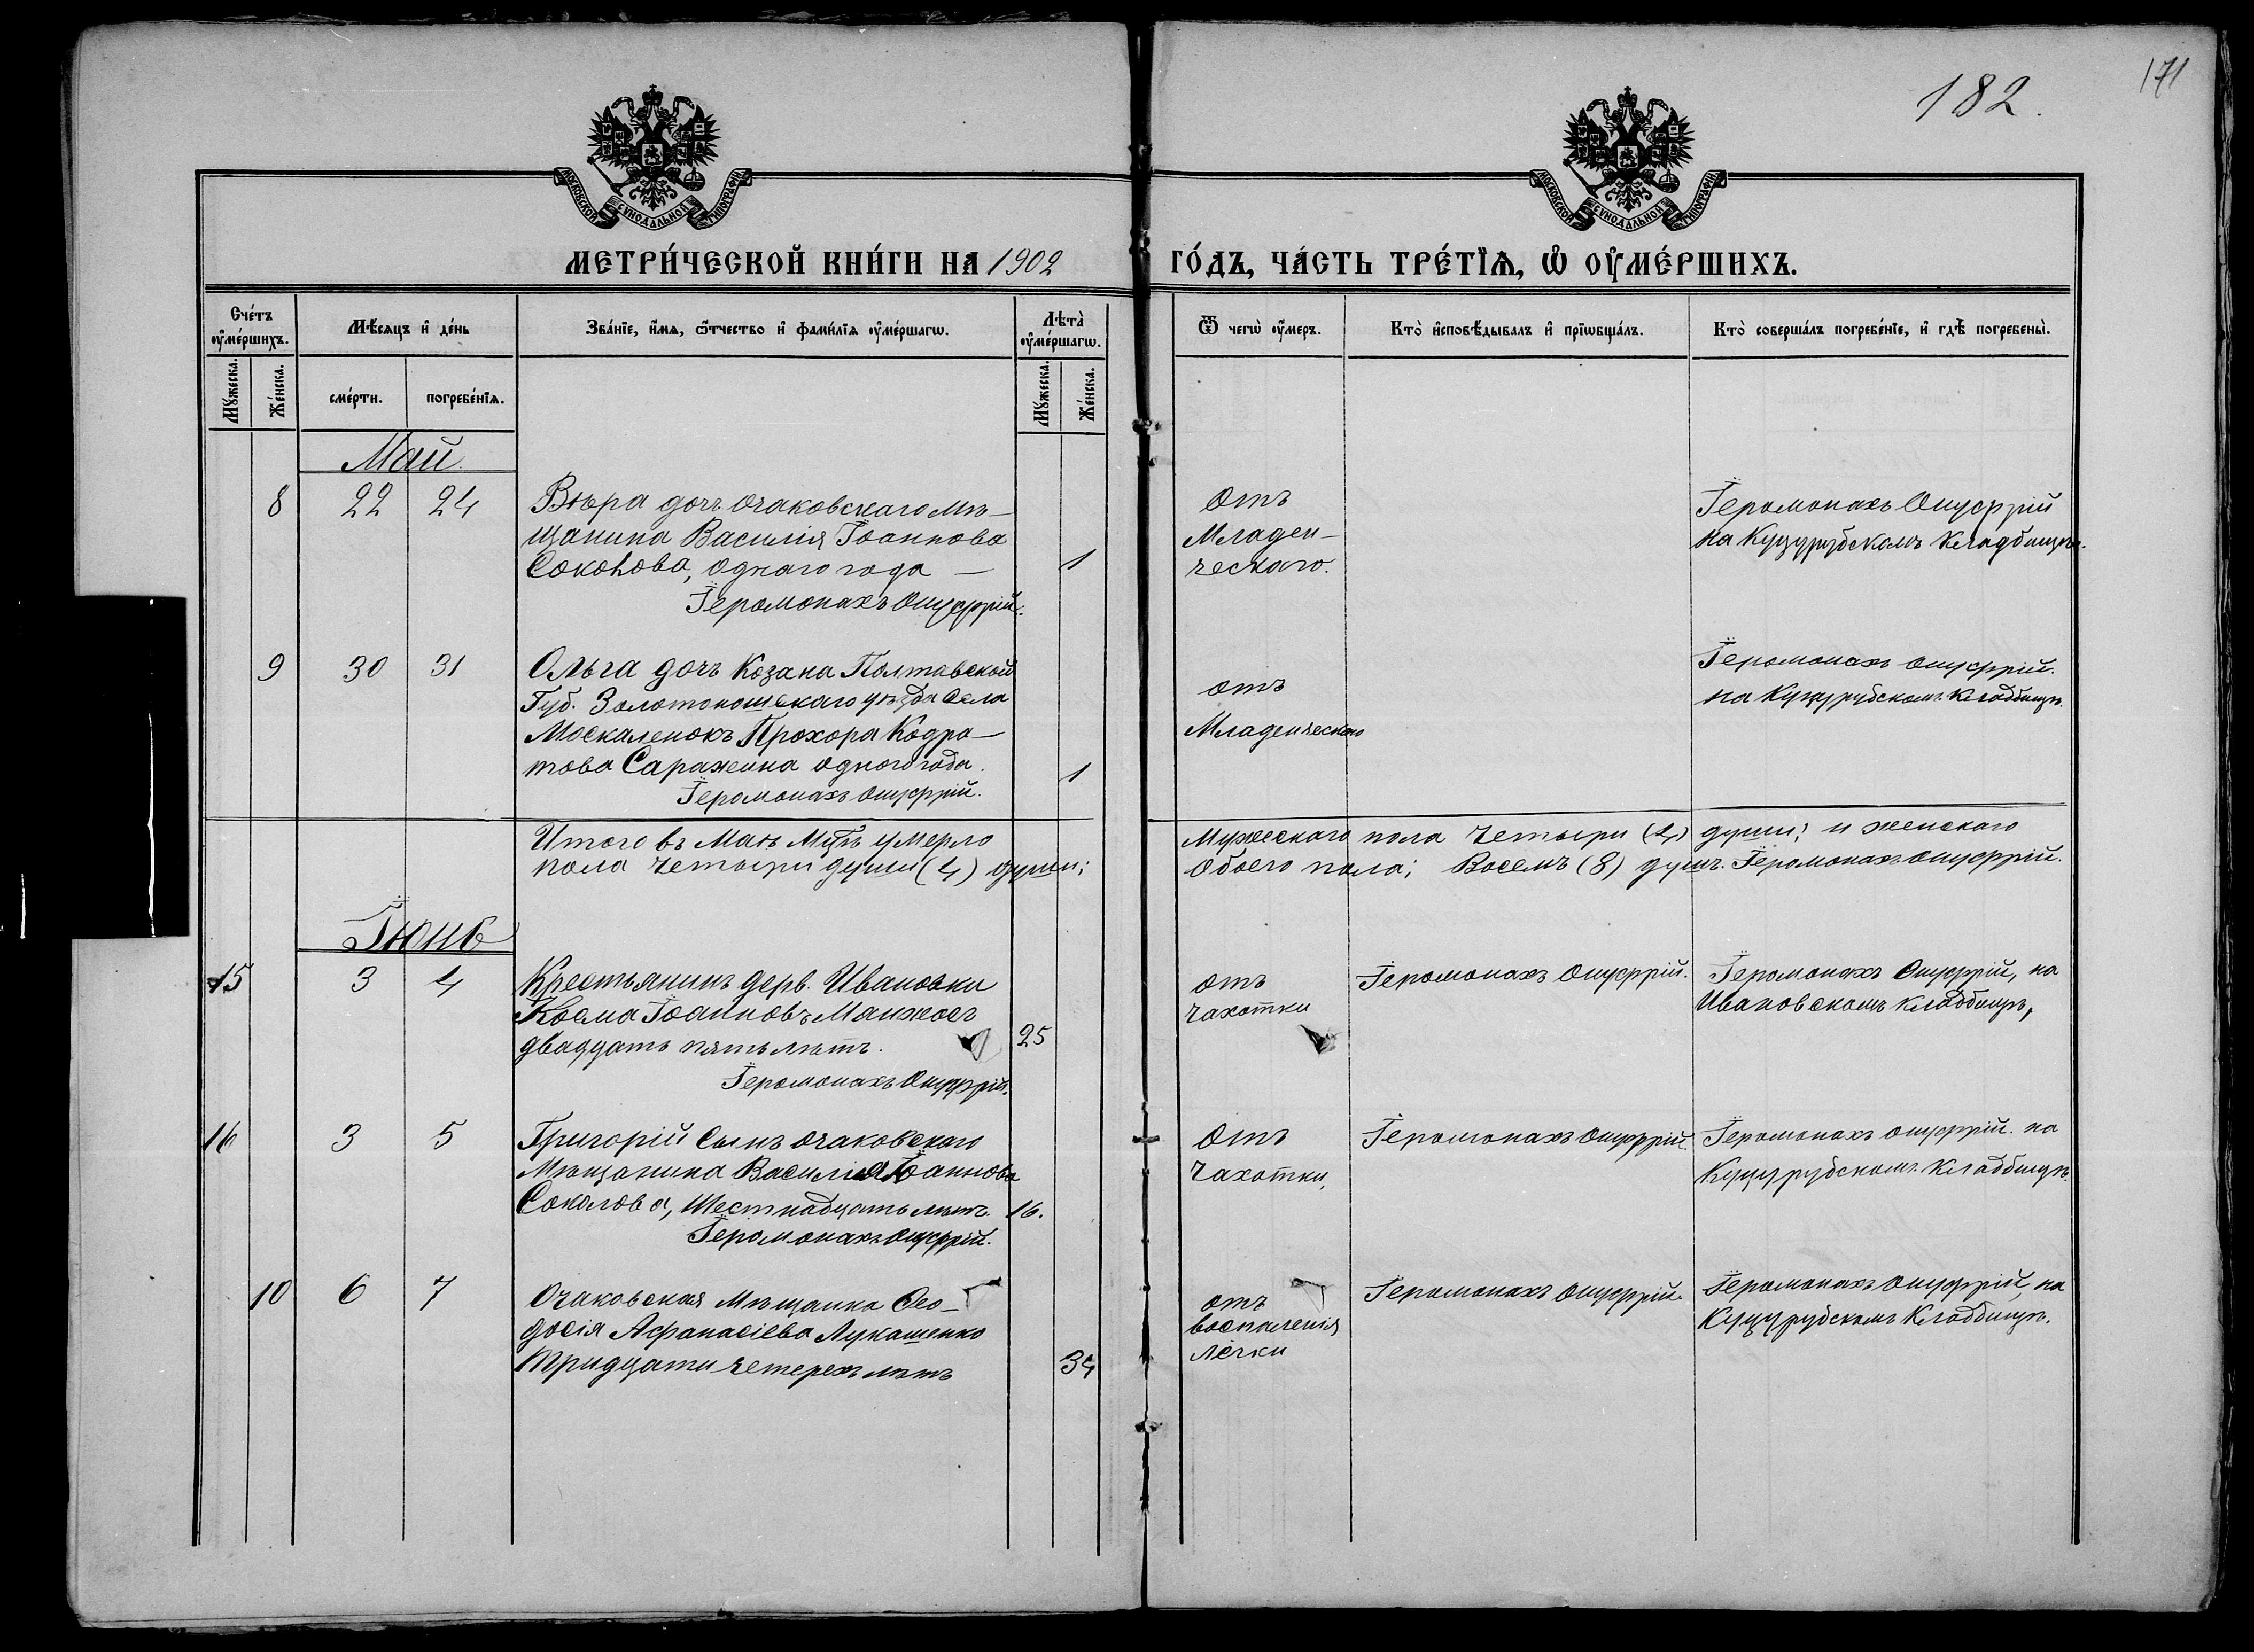 182.
171
МОСКОВСКОЙ СѴНОДАЛЬНОЙ ТИПОГРАФІИ
МОСКОВСКОЙ СѴНОДАЛЬНОЙ ТИПОГРАФІИ
МЕТРИ́ЧЕСКОЙ КНИ́ГИ НА 1902 ГО́ДЪ, ЧА́СТЬ ТРЕ́ТІѦ, Ѡ҆ ОУ҆МЕ́РШИХЪ.
Сче́тъ оу҆ме́ршихъ.
Мѣ́сѧцъ и҆ де́нь
Зва́нїе, и҆́мѧ, ѻ҆́тчество и҆ фами́лїѧ оу҆ме́ршагѡ.
Лѣта̀ оу҆ме́ршагѡ.
Ѿ чегѡ̀ оу҆́меръ.
Кто̀ и҆сповѣ́дывалъ и҆ прїѡбща́лъ.
Кто̀ соверша́лъ погребе́нїе, и҆ гдѣ̀ погребены̀.
Мꙋ́жеска.
Же́нска.
сме́рти.
погребе́нїѧ.
Мꙋ́жеска.
Же́нска.
Май
8 22 24 Вѣра дочъ очаковскаго мѣ-
щанина Василія Іоаннова
Соколова, однаго года — 1
Іеромонахъ Онуфрій.
Отъ
Младен-
ческаго.
Іеромонахъ Онуфрій
на Куцурубскомъ Кладбищѣ.
9 30 31 Ольга дочъ Козака Полтавской
Губ. Золотоношскаго уѣзда Села
Москаленокъ Прохора Кодра-
това Саражина одного года. 1
Іеромонахъ Онуфрій.
отъ
Младенческаго
Іеромонахъ Онуфрій.
на Куцурубскомъ Кладбищѣ.
Итого въ Маѣ Мцѣ умерло Мужескаго пола четыри (4) души; и женскаго
пола четыри души (4) души; Обоего пола; Восемъ (8) душъ. Іеромонахъ Онуфрій.
Іюнь
15 3 4 Крестьянинъ дерв. Ивановки
Косма Іоанновъ Манжосъ
двадцать пять лѣтъ. 25
Іеромонахъ Онуфрій.
отъ
чахотки
Іеромонахъ Онуфрій.
Іеромонахъ Онуфрій, на
Ивановскомъ кладбищѣ,
16 3 5 Григорій Сынъ очаковскаго
Мѣщанина Василія Іоаннова
Соколова, Шестнадцать лѣтъ. 16.
Іеромонахъ Онуфрій.
Отъ
Чахотки,
Іеромонахъ Онуфрій.
Іеромонахъ Онуфрій. на
Куцурубскомъ Кладбищѣ.
10 6 7 Очаковская Мѣщанка Ѳео-
досія Афанасіева Лукашенко
Тридцати четерехъ лѣтъ 34
отъ
воспаленія
Лёгки
Іеромонахъ Онуфрій.
Іеромонахъ Онуфрій, на
Куцурубскомъ Кладбищѣ.